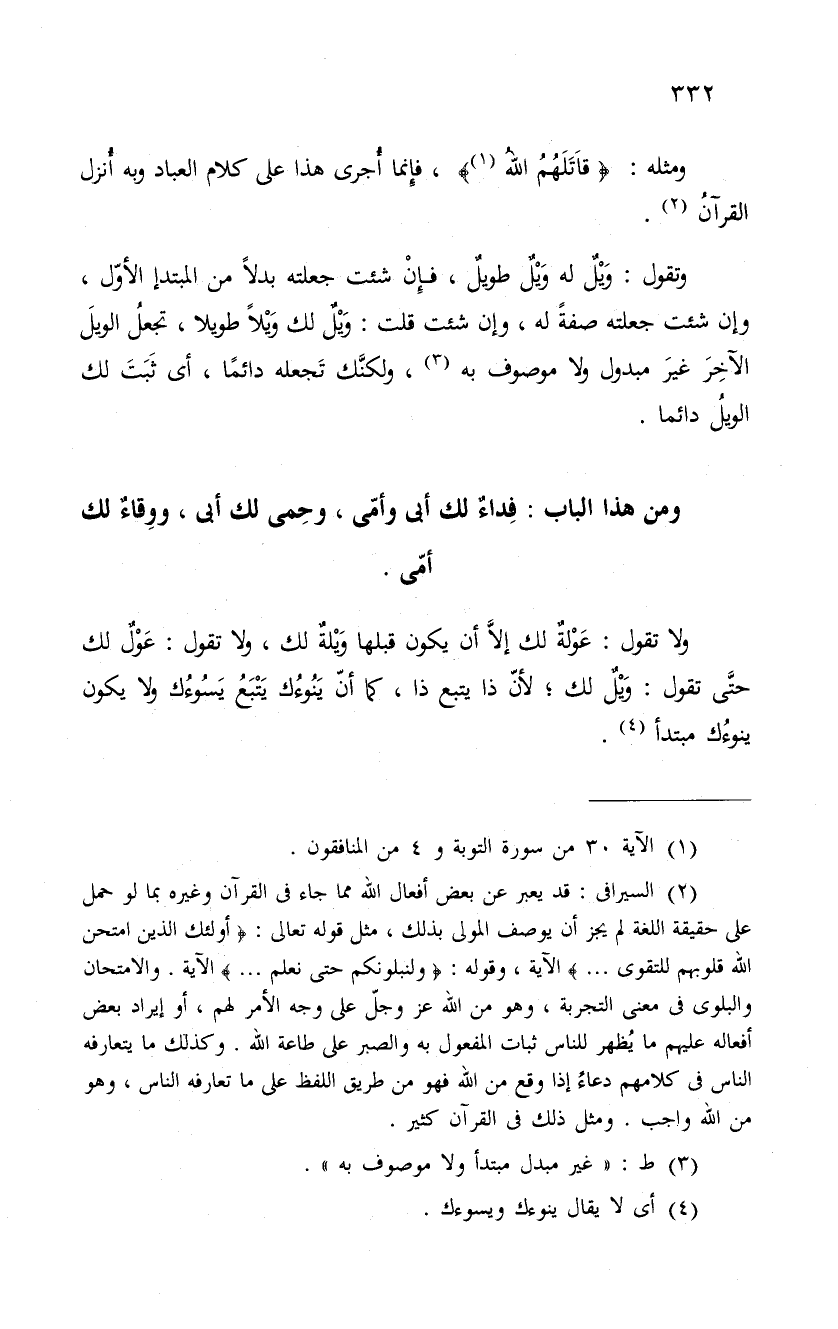 ٣٣٢
ومثله : ﴿ قَاتَلَهُمُ اللهُ (١)﴾ ، فإِنما أُجرى هذا على كلام العباد وبه أُنزل
القرآنُ (٢) .
وتقول : وَيْلٌ له وَيْلٌ طويلٌ ، فإِنْ شئت جعلته بدلاً من المبتدإ الأوّل ،
وإن شئت جعلته صفةً له ، وإن شئت قلت : وَيْلٌ لك وَيْلاً طويلا ، تجعلُ الويلَ
الآخِرَ غيرَ مبدول ولا موصوف به (٣) ، ولكنَّك تَجعله دائمًا ، أى ثَبَتَ لك
الويلُ دائما .
ومن هذا الباب : فِداءٌ لك أبى وأمّى ، وحِمى لك أبى ، ووِقاءٌ لك
أمّى .
ولا تقول : عَوْلةٌ لك إلاَّ أن يكون قبلها وَيْلةٌ لك ، ولا تقول : عَوْلٌ لك
حتَّى تقول : وَيْلٌ لك ؛ لأنّ ذا يتبع ذا ، كما أنّ يَنُوءُك يَتْبَعُ يَسُوءُك ولا يكون
ينوءُك مبتدأ (٤) .
(١) الآية ٣٠ من سورة التوبة و ٤ من المنافقون .
(٢) السيرافى : قد يعبر عن بعض أفعال الله مما جاء فى القرآن وغيره بما لو حمل
على حقيقة اللغة لم يجز أن يوصف المولى بذلك ، مثل قوله تعالى : ﴿ أولئك الذين امتحن
الله قلوبهم للتقوى ... ﴾ الآية ، وقوله : ﴿ ولنبلونكم حتى نعلم ... ﴾ الآية . والامتحان
والبلوى فى معنى التجربة ، وهو من الله عز وجلّ على وجه الأمر لهم ، أو إيراد بعض
أفعاله عليهم ما يُظهر للناس ثبات المفعول به والصبر على طاعة الله . وكذلك ما يتعارفه
الناس فى كلامهم دعاءً إذا وقع من الله فهو من طريق اللفظ على ما تعارفه الناس ، وهو
من الله واجب . ومثل ذلك فى القرآن كثير .
(٣) ط : « غير مبدل مبتدأ ولا موصوف به » .
(٤) أى لا يقال ينوءك ويسوءك .